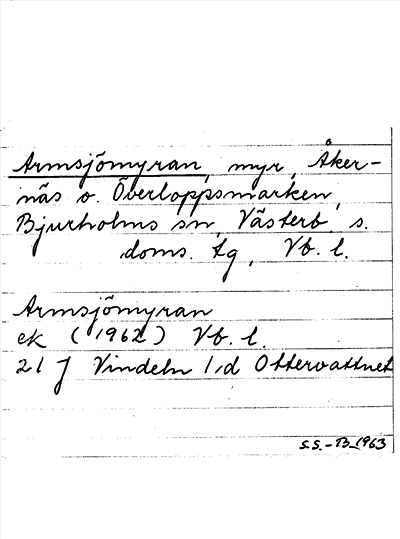 Armsjömyran, myr, Åker-
näs o. Överloppsmarken,
Bjurholms sn, Västerb. s.
doms. tg, Vb. l.
Armsjömyran
ek (1962) Vb. l.
21 J Vindeln 1, d Ottervattnet
S.S.-B 1963